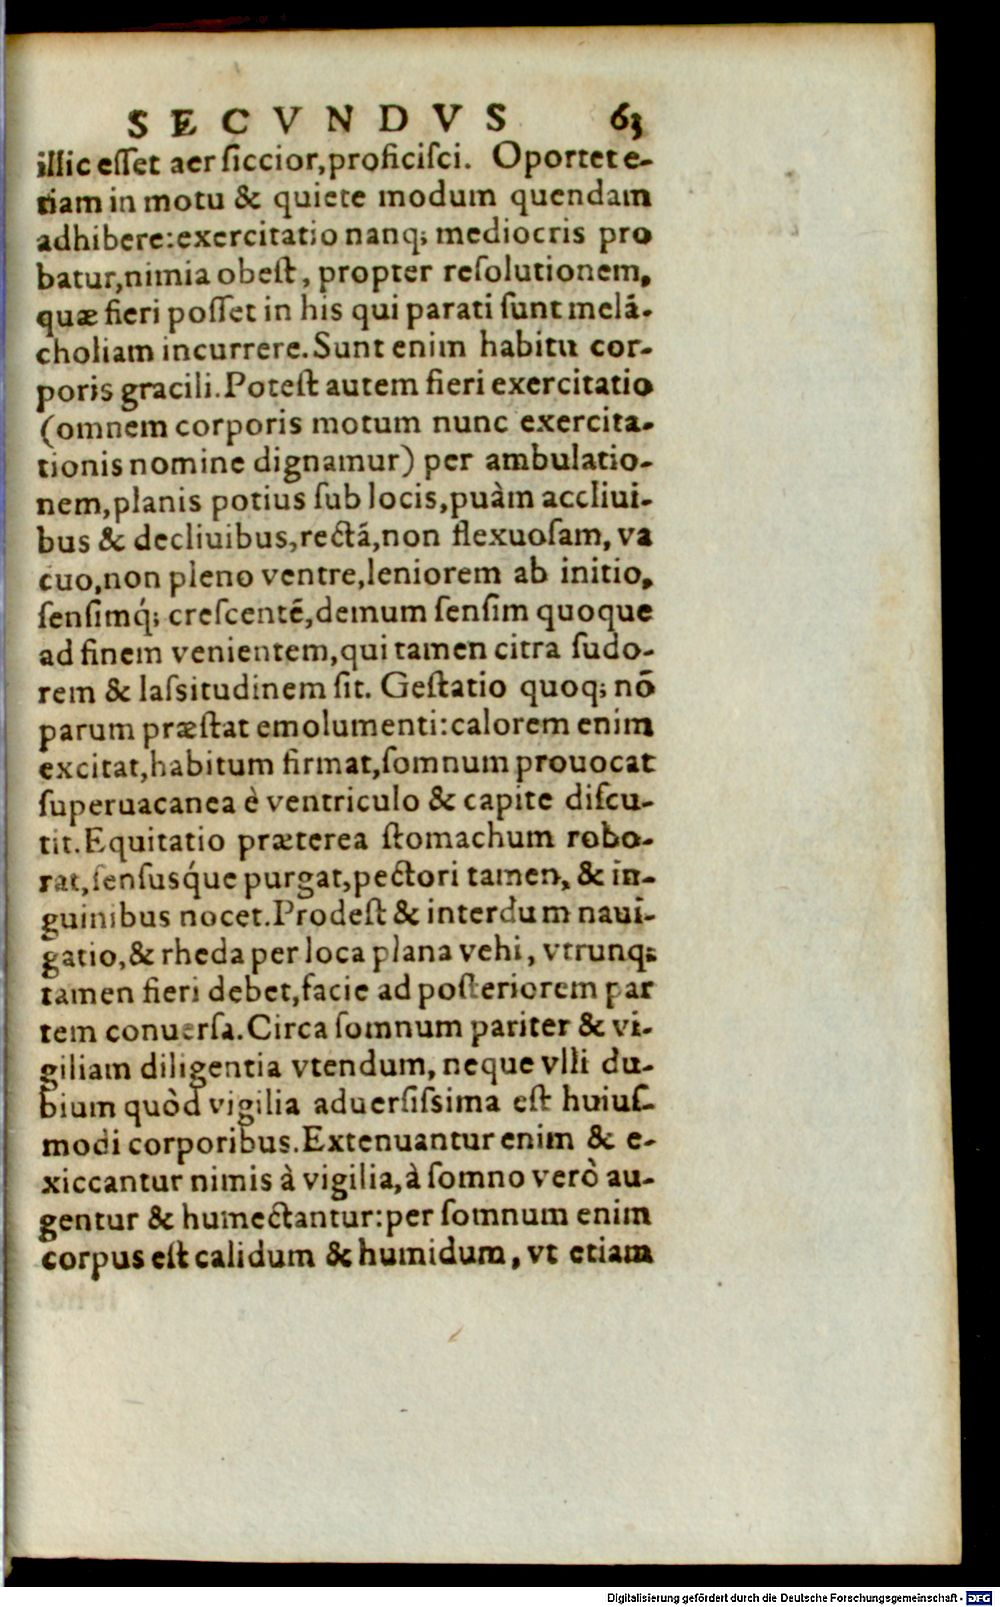 SECVNDVS 63
illic esset aer siccior, proficisci. Oportet e-
tiam in motu & quiete modum quendam
adhibere: exercitatio nanq; mediocris pro
batur, nimia obest, propter resolutionem,
quæ fieri posset in his qui parati sunt melā-
choliam incurrere. Sunt enim habitu cor-
poris gracili. Potest autem fieri exercitatio
(omnem corporis motum nunc exercita-
tionis nomine dignamur) per ambulatio-
nem, planis potius sub locis, puàm accliui-
bus & decliuibus, rectā, non flexuosam, va
cuo, non pleno ventre, leniorem ab initio,
sensimq́; crescentē, demum sensim quoque
ad finem venientem, qui tamen citra sudo-
rem & lassitudinem sit. Gestatio quoq; nō
parum præstat emolumenti: calorem enim
excitat, habitum firmat, somnum prouocat
superuacanea è ventriculo & capite discu-
tit. Equitatio præterea stomachum robo-
rat, sensusq́ue purgat, pectori tamen, & in-
guinibus nocet. Prodest & interdum naui-
gatio, & rheda per loca plana vehi, vtrunq;
tamen fieri debet, facie ad posteriorem par
tem conuersa. Circa somnum pariter & vi-
giliam diligentia vtendum, neque vlli du-
bium quòd vigilia aduersissima est huius-
modi corporibus. Extenuantur enim & e-
xiccantur nimis à vigilia, à somno verò au-
gentur & humectantur: per somnum enim
corpus est calidum & humidum, vt etiam
Digitalisierung gefördert durch die Deutsche Forschungsgemeinschaft - DFG